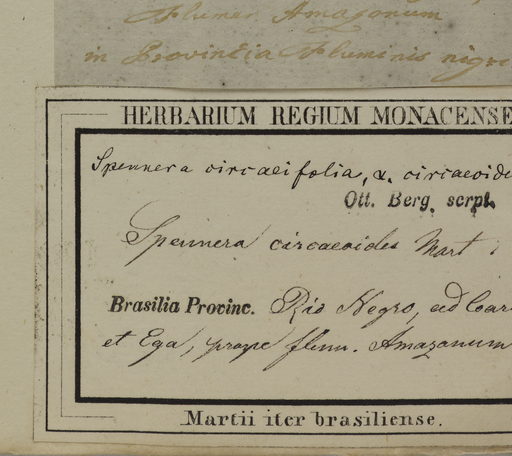 Flumen Amazonum
in Provincia Fluminis nigri
HERBARIUM REGIUM MONACENSE
Spennera circaeifolia, α. circaeoide
Ott. Berg. scrpt.
Spennera circaeoides Mart
Brasilia Provinc. Rio Negro, ad Car
et Ega, prope flum. Amazonum
Martii iter brasiliense.